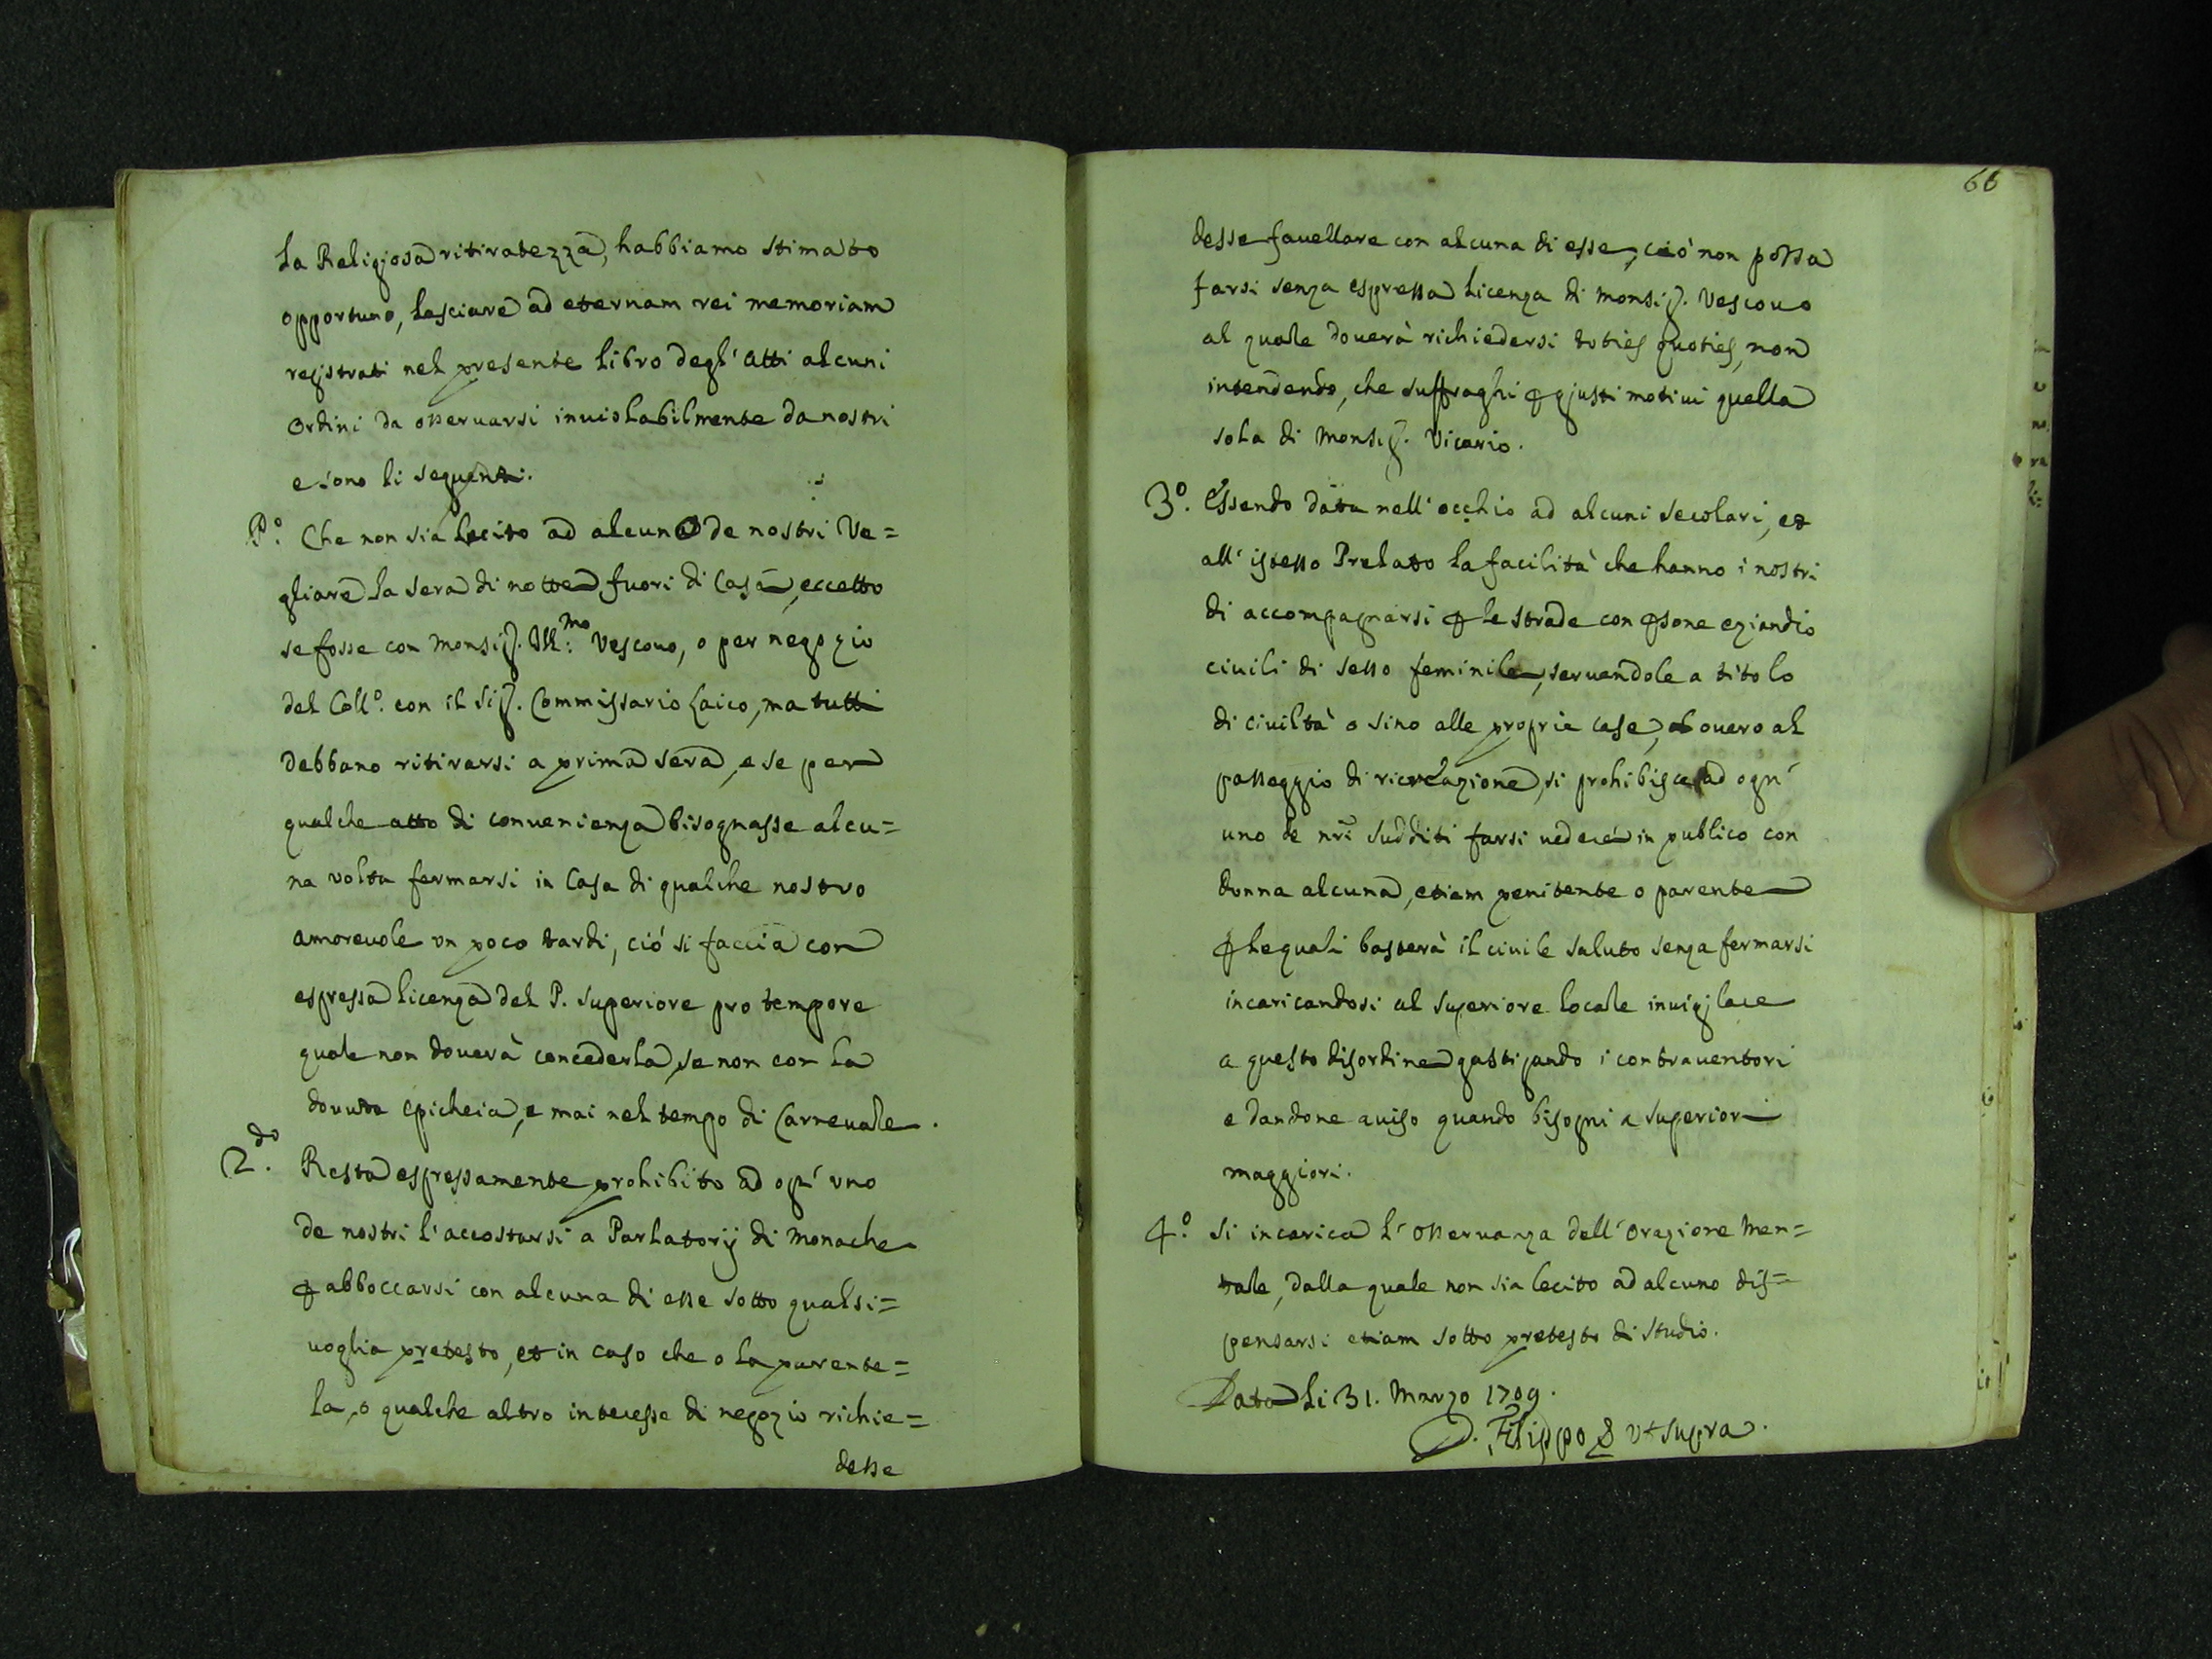 la Religiosa ritiratezza, habbiamo stimato
opportuno, lasciare ad eternam rei memoriam
registrati nel presente libro degl' atti alcuni
Ordini da osseruarsi inuiolabilmente da nostri
e sono li seguenti.
P.º Che non sia lecito ad alcuno de nostri Ve=
gliare la sera di notte fuori di Casa, eccetto
se fosse con Monsig. Ill:mo Vescouo, o per negozio
del Coll.º con il Sig. Commissario Laico, ma tutti
debbano ritirarsi a prima sera, e se per
qualche atto di conuenienza bisognasse alcu=
na volta fermarsi in Casa di qualche nostro
amoreuole vn poco tardi, ciò si faccia con
espressa licenza del P. Superiore pro tempore
quale non douerà concederla, se non con la
douuta epicheia, e mai nel tempo di Carneuale.
2.do Resta espressamente prohibito ad ogn' vno
de nostri l'accostarsi a Parlatorij di Monache
ꝑ abboccarsi con alcuna di esse sotto qualsi=
uoglia pretesto, et in caso che o la parente=
la, o qualche altro interesse di negozio richie=
desse
66
desse fauellare con alcuna di esse, ciò non possa
farsi senza espressa licenza di Monsig. Vescouo
al quale douerà richiedersi toties quoties, non
intendendo, che suffraghi ꝑ giusti motiui quella
sola di Monsig. Vicario.
3.º Essendo data nell' occhio ad alcuni secolari, et
all' istesso Prelato la facilità che hanno i nostri
di accompagnarsi ꝑ le strade con ꝑsone eziandio
ciuili di sesso feminile, seruendole a titolo
di ciuiltà o sino alle proprie case, ouero al
passeggio di ricreazione, si prohibisce ad ogn'
uno de nr̃i sudditi farsi uedere in publico con
donna alcuna, etiam penitente o parente
ꝑ le quali basterà il ciuile saluto senza fermarsi
incaricandosi al Superiore locale inuigilare
a questo disordine gastigando i contrauentori
e dandone auiso quando bisogni a Superiori
maggiori.
4.º Si incarica l' osseruanza dell' Orazione Men=
tale, dalla quale non sia lecito ad alcuno dis=
pensarsi etiam sotto pretesto di studio.
Data li 31. Marzo 1709.
D. Filippo vt supra.